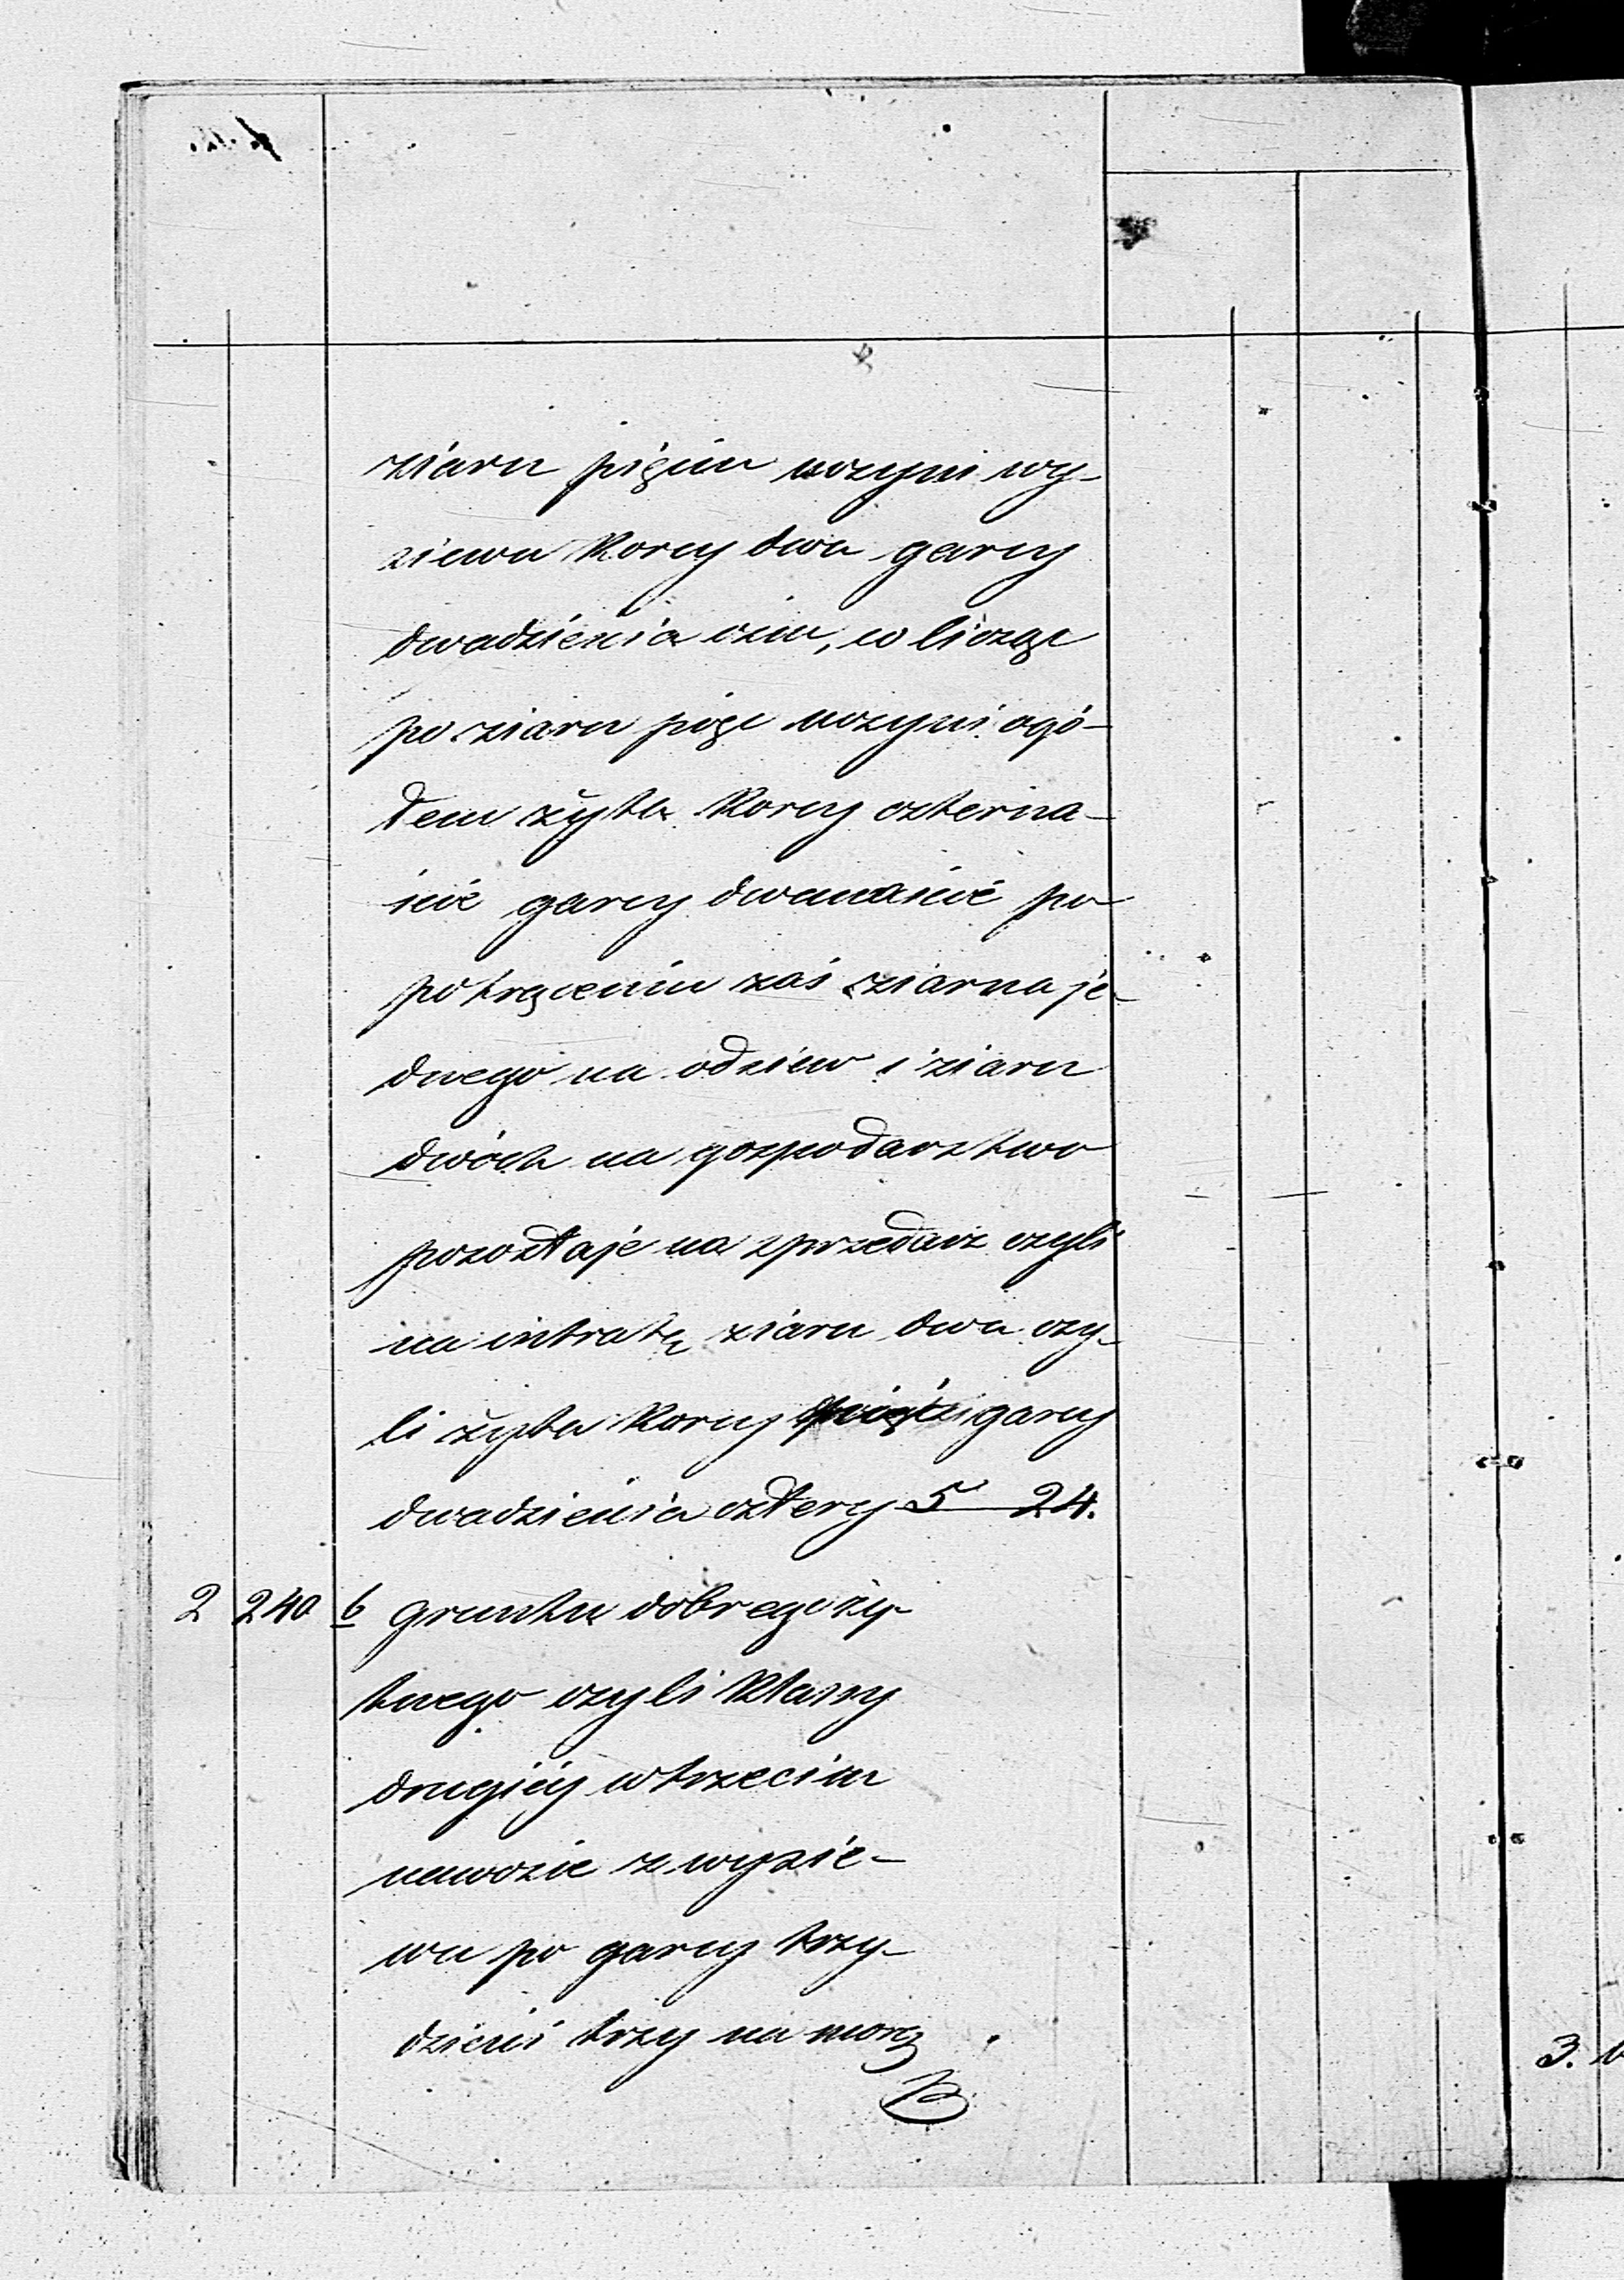 ziarn pięciu uczyni wy-
siewu Korcy dwa garcy
dwadzieścia ośm, co licząc
po ziarn pięć uczyni ogó-
łem żyta Korcy czterna-
ście garcy dwanaście po
potrąceniu zaś ziarna je-
dnego na odsiew i ziarn
dwóch na gospodarstwo
pozostaje na sprzedaż czyli
na intratę ziarn dwa czy-
li żyta Korcy pięć garcy
dwadzieścia cztery 5 24.
2 240 6 gruntu dobrego ży-
tnego czyli Klassy
drugiéj w trzecim
nawozie z wysie-
wu po garcy trzy-
dzieści trzy na morg
3.